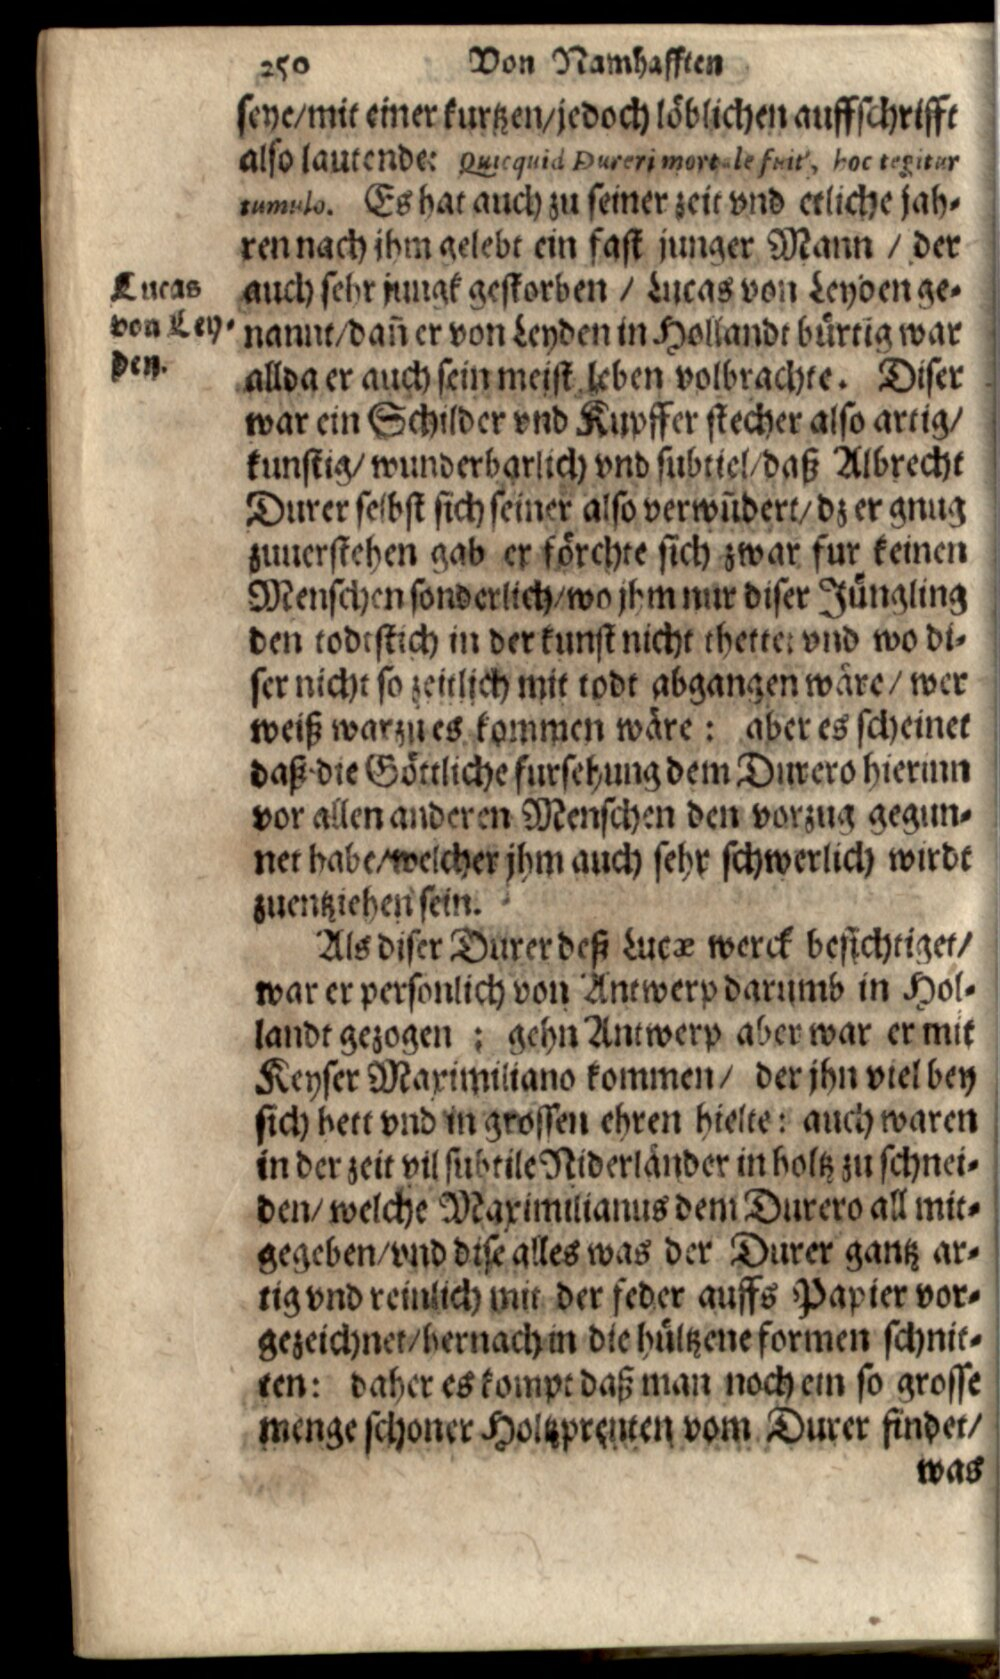 250 Von Namhafften
seye/mit einer kurtzen/jedoch löblichen auffschrifft
also lautende: Quicquid Dureri mortale fuit, hoc tegitur
tumulo. Es hat auch zu seiner zeit vnd etliche jah-
ren nach jhm gelebt ein fast junger Mann / der
auch sehr jungk gestorben / Lucas von Leyden ge-
nannt/dañ er von Leyden in Hollandt bürtig war
allda er auch sein meist leben volbrachte. Diser
war ein Schilder vnd Kupffer stecher also artig/
kunstig/ wunderbarlich vnd subtiel/daß Albrecht
Durer selbst sich seiner also verwũdert/dz er gnug
zuuerstehen gab er förchte sich zwar fur keinen
Menschen sonderlich/wo jhm nur diser Jüngling
den todtstich in der kunst nicht thette: vnd wo di-
ser nicht so zeitlich mit todt abgangen wäre/ wer
weiß warzu es kommen wäre : aber es scheinet
daß die Göttliche fursehung dem Durero hierinn
vor allen anderen Menschen den vorzug gegun-
net habe/welcher jhm auch sehr schwerlich wirdt
zuentziehen sein.
Als diser Durer deß Lucæ werck besichtiget/
war er personlich von Antwerp darumb in Hol-
landt gezogen : gehn Antwerp aber war er mit
Keyser Maximiliano kommen/ der jhn viel bey
sich hett vnd in grossen ehren hielte: auch waren
in der zeit vil subtile Niderländer in holtz zu schnei-
den/ welche Maximilianus dem Durero all mit-
gegeben/vnd dise alles was der Durer gantz ar-
tig vnd reinlich mit der feder auffs Papier vor-
gezeichnet/hernach in die hültzene formen schnit-
ten: daher es kompt daß man noch ein so grosse
menge schoner Holtzprenten vom Durer findet/
was
Lucas
von Ley-
den.